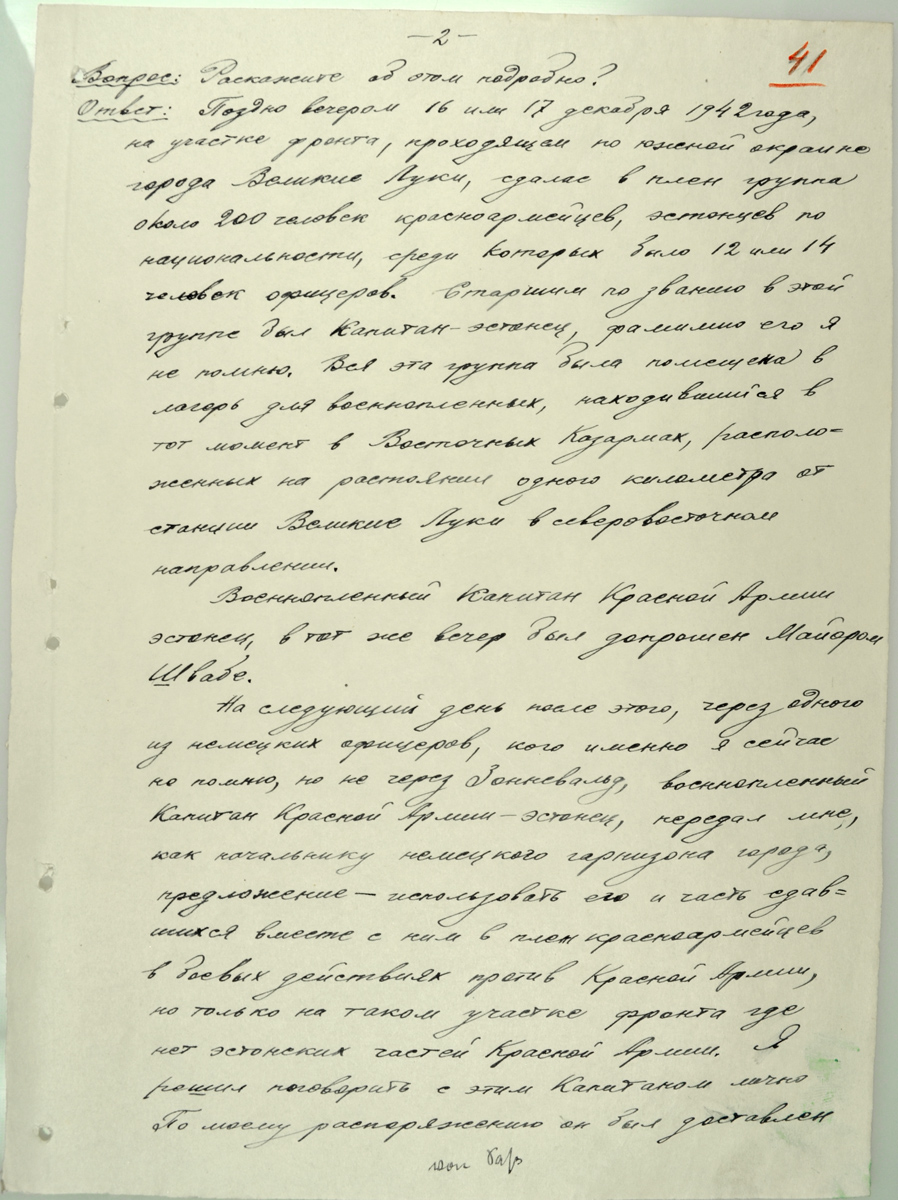 —2—
41
Вопрос: Раскажите об этом подробно?
Ответ: Поздно вечером 16 или 17 декабря 1942 года,
на участке фронта, проходящем по южной окраине
города Великие Луки, сдалас в плен группа
около 200 человек красноармейцев, эстонцев по
национальности, среди которых было 12 или 14
человек офицеров. Старшим по званию в этой
группе был Капитан-эстонец, фамилию его я
не помню. Вся эта группа была помещена в
лагерь для военнопленных, находившийся в
тот момент в Восточных Казармах, располо=
женных на растоянии одного километра от
станции Великие Луки в северовосточном
направлении.
Военнопленный Капитан Красной Армии
эстонец, в тот же вечер был допрошен Майором
Швабе.
На следующий день после этого, через одного
из немецких офицеров, кого именно я сейчас
не помню, но не через Зонневальд, военнопленный
Капитан Красной Армии-эстонец, передал мне,
как начальнику немецкого гарнизона города,
предложение — использовать его и часть сдав=
шихся вместе с ним в плен красноармейцев
в боевых действиях против Красной Армии,
но только на таком участке фронта где
нет эстонских частей Красной Армии. Я
решил поговорить с этим Капитаном лично
По моему распоряжению он был доставлен
von